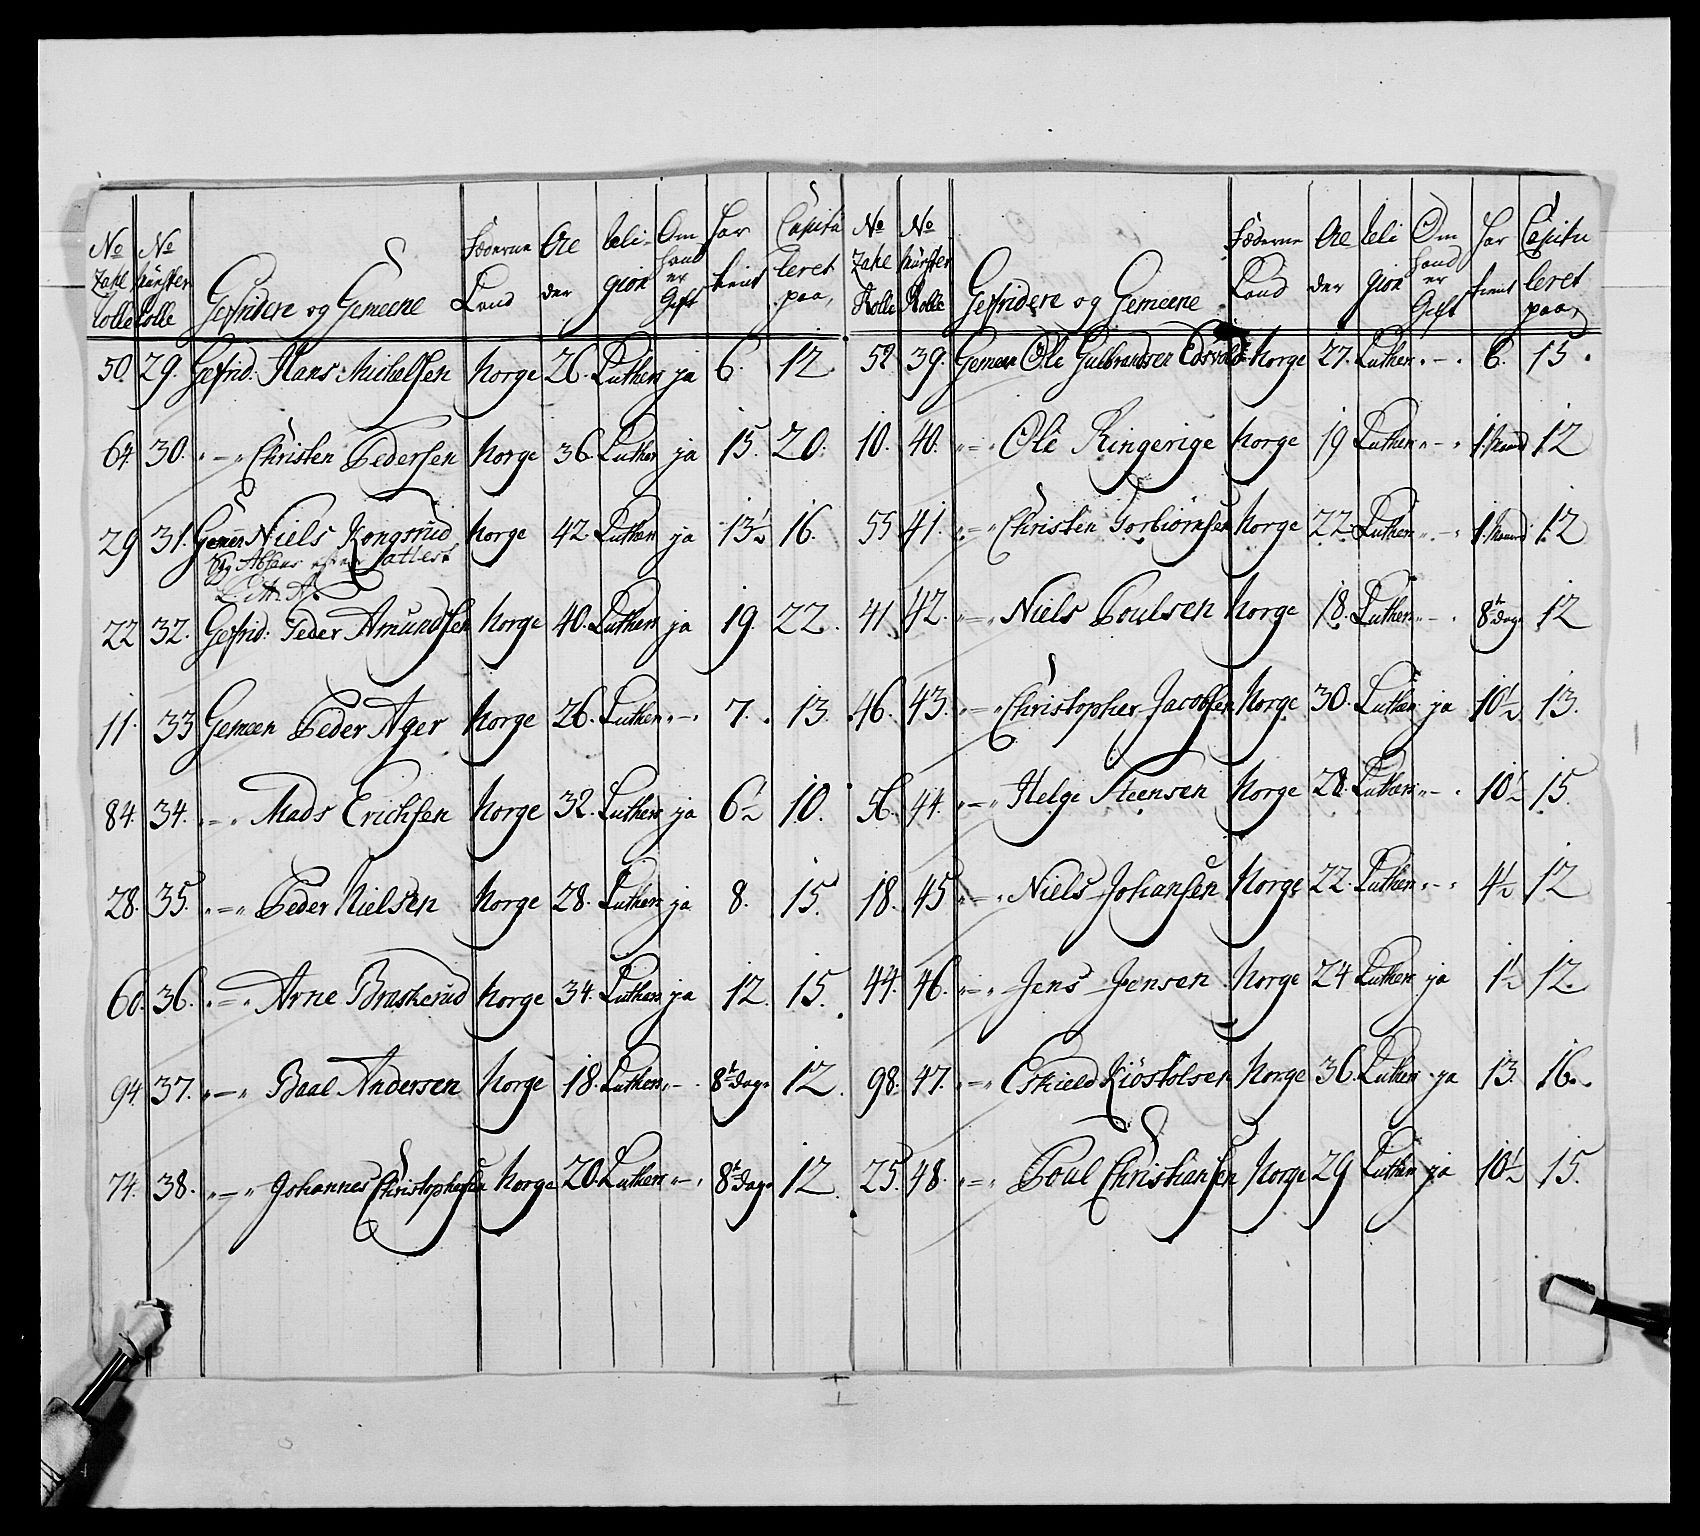 No Tahl Rolle | No Münster Rolle | Gefridere og Gemeene | Føderne Land | Al der | Reli- gion | Om hand er Gift | har tient | Capitu leret paa,
50. 29. Gefrid: Hans Michelsen Norge 26. Luthers ja 6. 12.
64. 30. „ – „ Christen Pedersen Norge 36. Luthers ja 15. 20.
29 31. Gemen Niels Kongsrud Norge 42. Luthers ja 13½ 16.
Litt. A.
22 32. Gefrid: Peder Amundsen Norge 40. Luthers ja 19. 22.
11. 33 Gemeen Peder Ager Norge 26. Luthers „ – „ 7. 13.
84. 34. „ – „ Mads Erichsen Norge 32. Luthers ja 6½ 10.
28. 35. „ = „ Peder Nielsen Norge 28. Luthers ja 8. 15.
60. 36. „ = „ Arne Braskerud Norge 34. Luthers ja 12. 15.
94. 37. „ – „ Baal Andersen Norge 18. Luthers „ – 8te Dage 12.
74. 38. „ – „ Johannes Christophersen Norge 20. Luthers „ – „ 8te Dage 12.
No Tahl Rolle | No Münster Rolle | Gefridere og Gemeene | Føderne Land | Al der | Reli gion | Om hand er Gift | har tient | Capitu leret paa,
52. 39. Gemeen Ole Gulbrandsen Norge 27. Luthers „ – „ 6. 15.
10. 40. „ = „ Ole Ringerige Norge 19 Luthers „ – „ 1. Maaned 12
55 41. „ = „ Christen Torbiørnsen Norge 22. Luthers „ – „ 1. Maaned 12
41 42. „ = „ Niels Poulsen Norge 18. Luthers „ – „ 8te Dage 12
46. 43. „ = „ Christopher Jacobsen Norge 30. Luthers ja 10½ 13.
56. 44. „ = „ Helge Steensen Norge 28. Luthers „ – „ 10½ 15.
18. 45 „ = „ Niels Johansen Norge 22. Luthers „ – „ 4½ 12
44. 46. „ = „ Jens Jensen Norge 24 Luthers ja 1½ 12.
98. 47. „ = „ Eskield Kiøstolsen Norge 36. Luthers ja 13. 16.
25. 48. „ = „ Poul Christiansen Norge 29 Luthers ja 10½ 15.